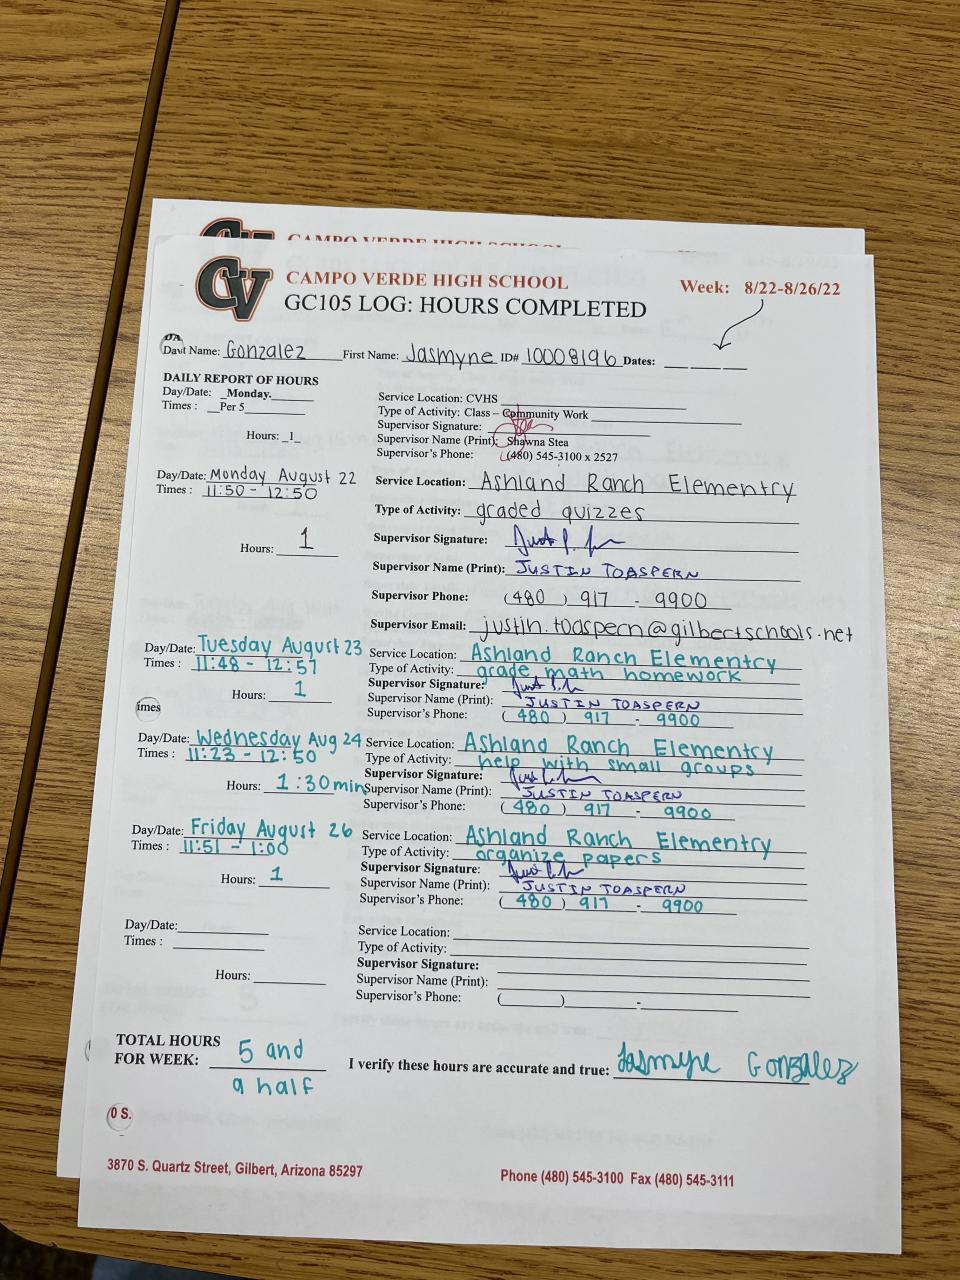 CV
CAMPO VERDE HIGH SCHOOL
CV
CAMPO VERDE HIGH SCHOOL
Week: 8/22-8/26/22
GC105 LOG: HOURS COMPLETED
Name: Gonzalez First Name: Jasmyne ID# 10008196 Dates:
DAILY REPORT OF HOURS
Day/Date: Monday.
Times : Per 5
Hours: 1
Service Location: CVHS
Type of Activity: Class – Community Work
Supervisor Signature:
Supervisor Name (Print): Shawna Stea
Supervisor's Phone: (480) 545-3100 x 2527
Day/Date: Monday August 22
Times : 11:50 - 12:50
Hours: 1
Service Location: Ashland Ranch Elementry
Type of Activity: graded quizzes
Supervisor Signature:
Supervisor Name (Print): JUSTIN TOASPERN
Supervisor Phone: (480) 917 - 9900
Supervisor Email: justin.toaspern@gilbertschools.net
Day/Date: Tuesday August 23
Times : 11:48 - 12:57
Hours: 1
imes
Service Location: Ashland Ranch Elementry
Type of Activity: grade math homework
Supervisor Signature:
Supervisor Name (Print): JUSTIN TOASPERN
Supervisor's Phone: (480) 917 - 9900
Day/Date: Wednesday Aug 24
Times : 11:23 - 12:50
Hours: 1:30min
Service Location: Ashland Ranch Elementry
Type of Activity: help with small groups
Supervisor Signature:
Supervisor Name (Print): JUSTIN TOASPERN
Supervisor's Phone: (480) 917 - 9900
Day/Date: Friday August 26
Times : 11:51 - 1:00
Hours: 1
Service Location: Ashland Ranch Elementry
Type of Activity: organize papers
Supervisor Signature:
Supervisor Name (Print): JUSTIN TOASPERN
Supervisor's Phone: (480) 917 - 9900
Day/Date:
Times :
Hours:
Service Location:
Type of Activity:
Supervisor Signature:
Supervisor Name (Print):
Supervisor's Phone: ( ) -
TOTAL HOURS
FOR WEEK: 5 and
a half
I verify these hours are accurate and true: Jasmyne Gonzalez
0 S.
3870 S. Quartz Street, Gilbert, Arizona 85297
Phone (480) 545-3100 Fax (480) 545-3111